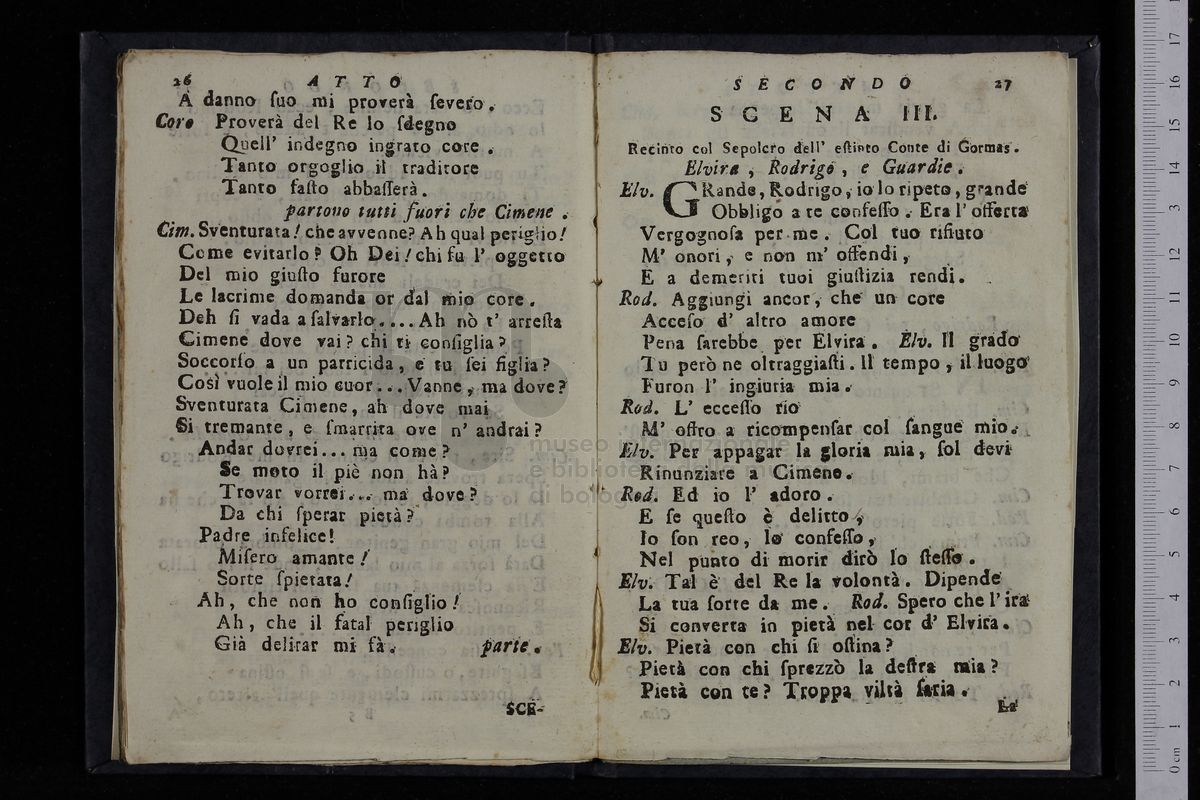 26 ATTO
A danno ſuo mi proverà ſevero.
Coro Proverà del Re lo ſdegno
Quell' indegno ingrato core.
Tanto orgoglio il traditore
Tanto faſto abbaſſerà.
partono tutti fuori che Cimene.
Cim. Sventurata! che avvenne? Ah qual periglio!
Come evitarlo? Oh Dei! chi fu l' oggetto
Del mio giuſto furore
Le lacrime domanda or dal mio core.
Deh ſi vada a ſalvarlo.... Ah nò t' arreſta
Cimene dove vai? chi ti conſiglia?
Soccorſo a un parricida, e tu ſei figlia?
Così vuole il mio cuor... Vanne, ma dove?
Sventurata Cimene, ah dove mai
Si tremante, e ſmarrita ove n' andrai?
Andar dovrei... ma come?
Se moto il piè non hà?
Trovar vorrei... ma dove?
Da chi ſperar pietà?
Padre infelice!
Miſero amante!
Sorte ſpietata!
Ah, che non ho conſiglio!
Ah, che il fatal periglio
Già delirar mi fà. parte.
SCE-
SECONDO 27
SCENA III.
Recinto col Sepolcro dell' eſtinto Conte di Gormas.
Elvira, Rodrigo, e Guardie.
Elv. GRande, Rodrigo, io lo ripeto, grande
Obbligo a te confeſſo. Era l' offerta
Vergognoſa per me. Col tuo rifiuto
M' onori, e non m' offendi,
E a demeriti tuoi giuſtizia rendi.
Rod. Aggiungi ancor, che un core
Acceſo d' altro amore
Pena ſarebbe per Elvira. Elv. Il grado
Tu però ne oltraggiaſti. Il tempo, il luogo
Furon l' ingiuria mia.
Rod. L' ecceſſo rio
M' offro a ricompenſar col ſangue mio.
Elv. Per appagar la gloria mia, ſol devi
Rinunziare a Cimene.
Rod. Ed io l' adoro.
E ſe queſto è delitto,
Io ſon reo, lo confeſſo,
Nel punto di morir dirò lo ſteſſo.
Elv. Tal è del Re la volontà. Dipende
La tua ſorte da me. Rod. Spero che l' ira
Si converta in pietà nel cor d' Elvira.
Elv. Pietà con chi ſi oſtina?
Pietà con chi ſprezzò la deſtra mia?
Pietà con te? Troppa viltà ſaria.
La
museo internazionale
e biblioteca
di bologna